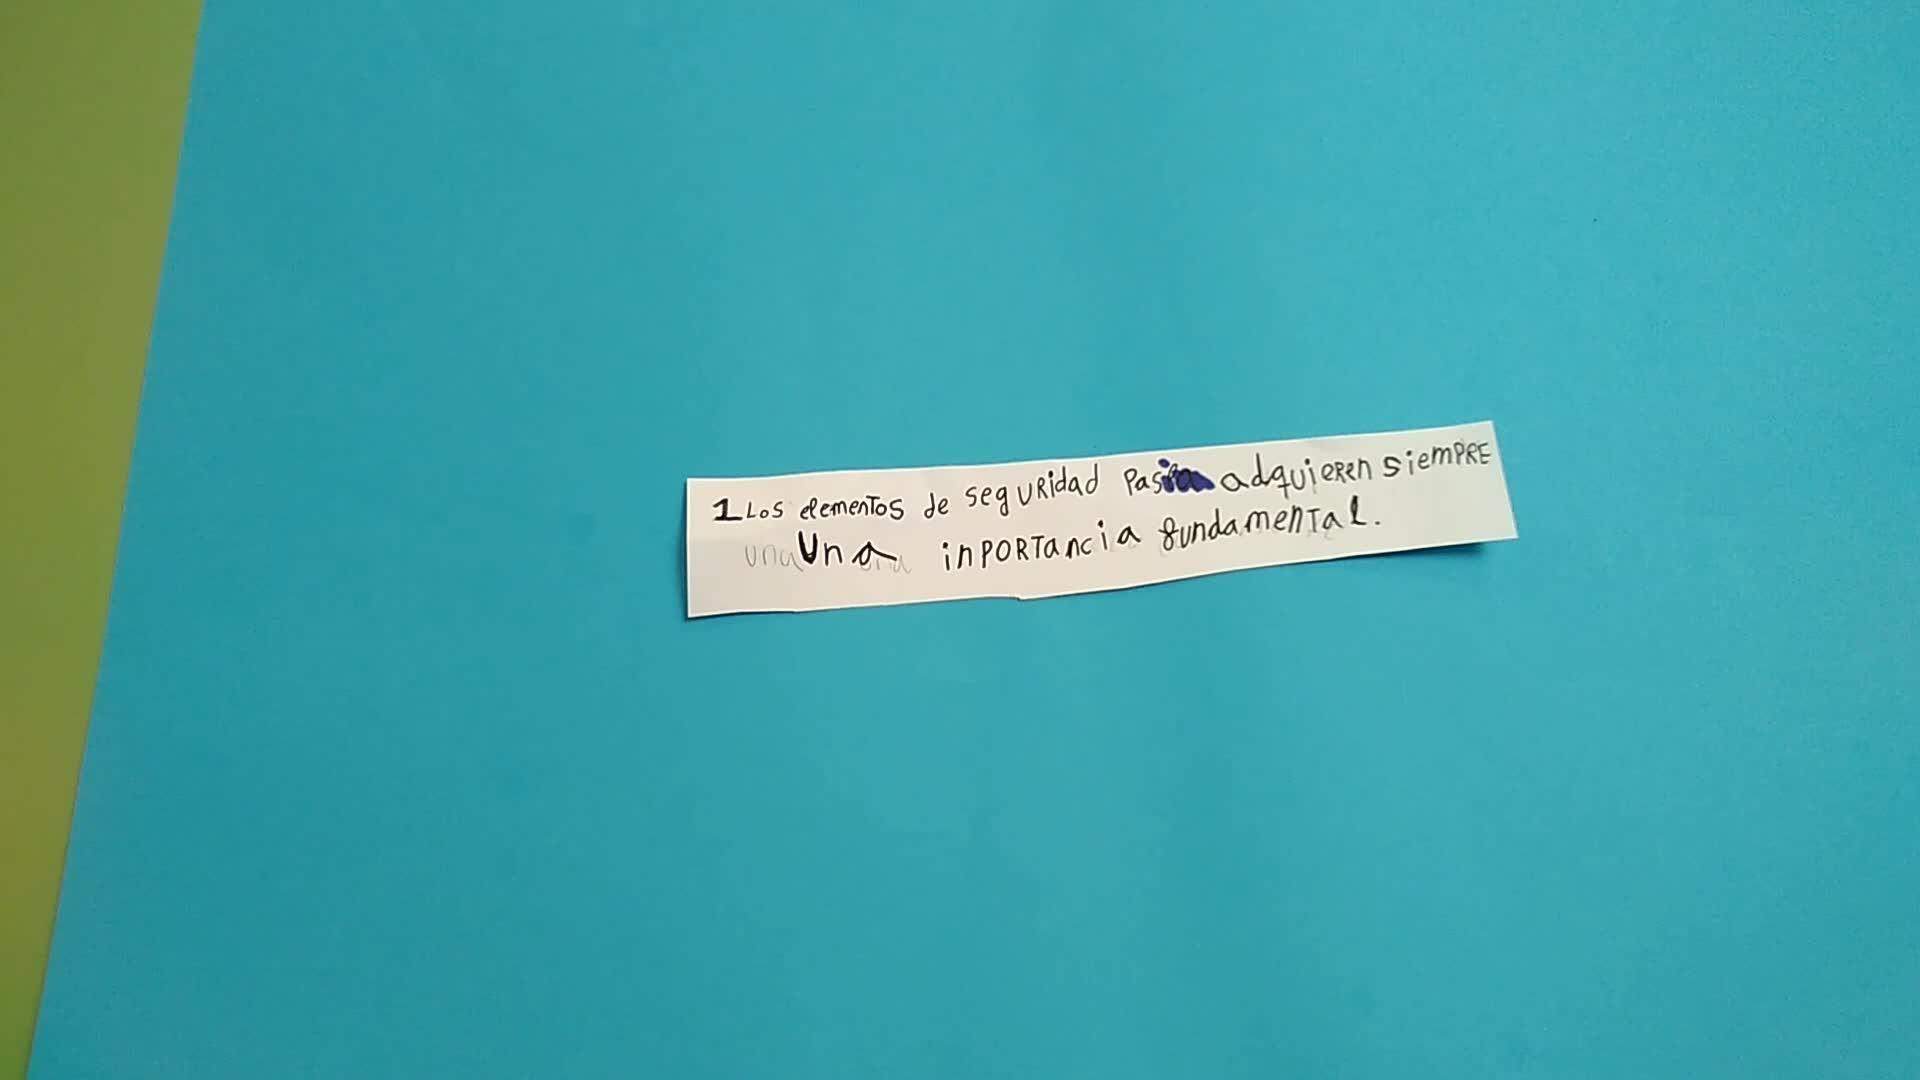 1 Los elementos de seguridad adquieren siempre
una una inportancia fundamental.